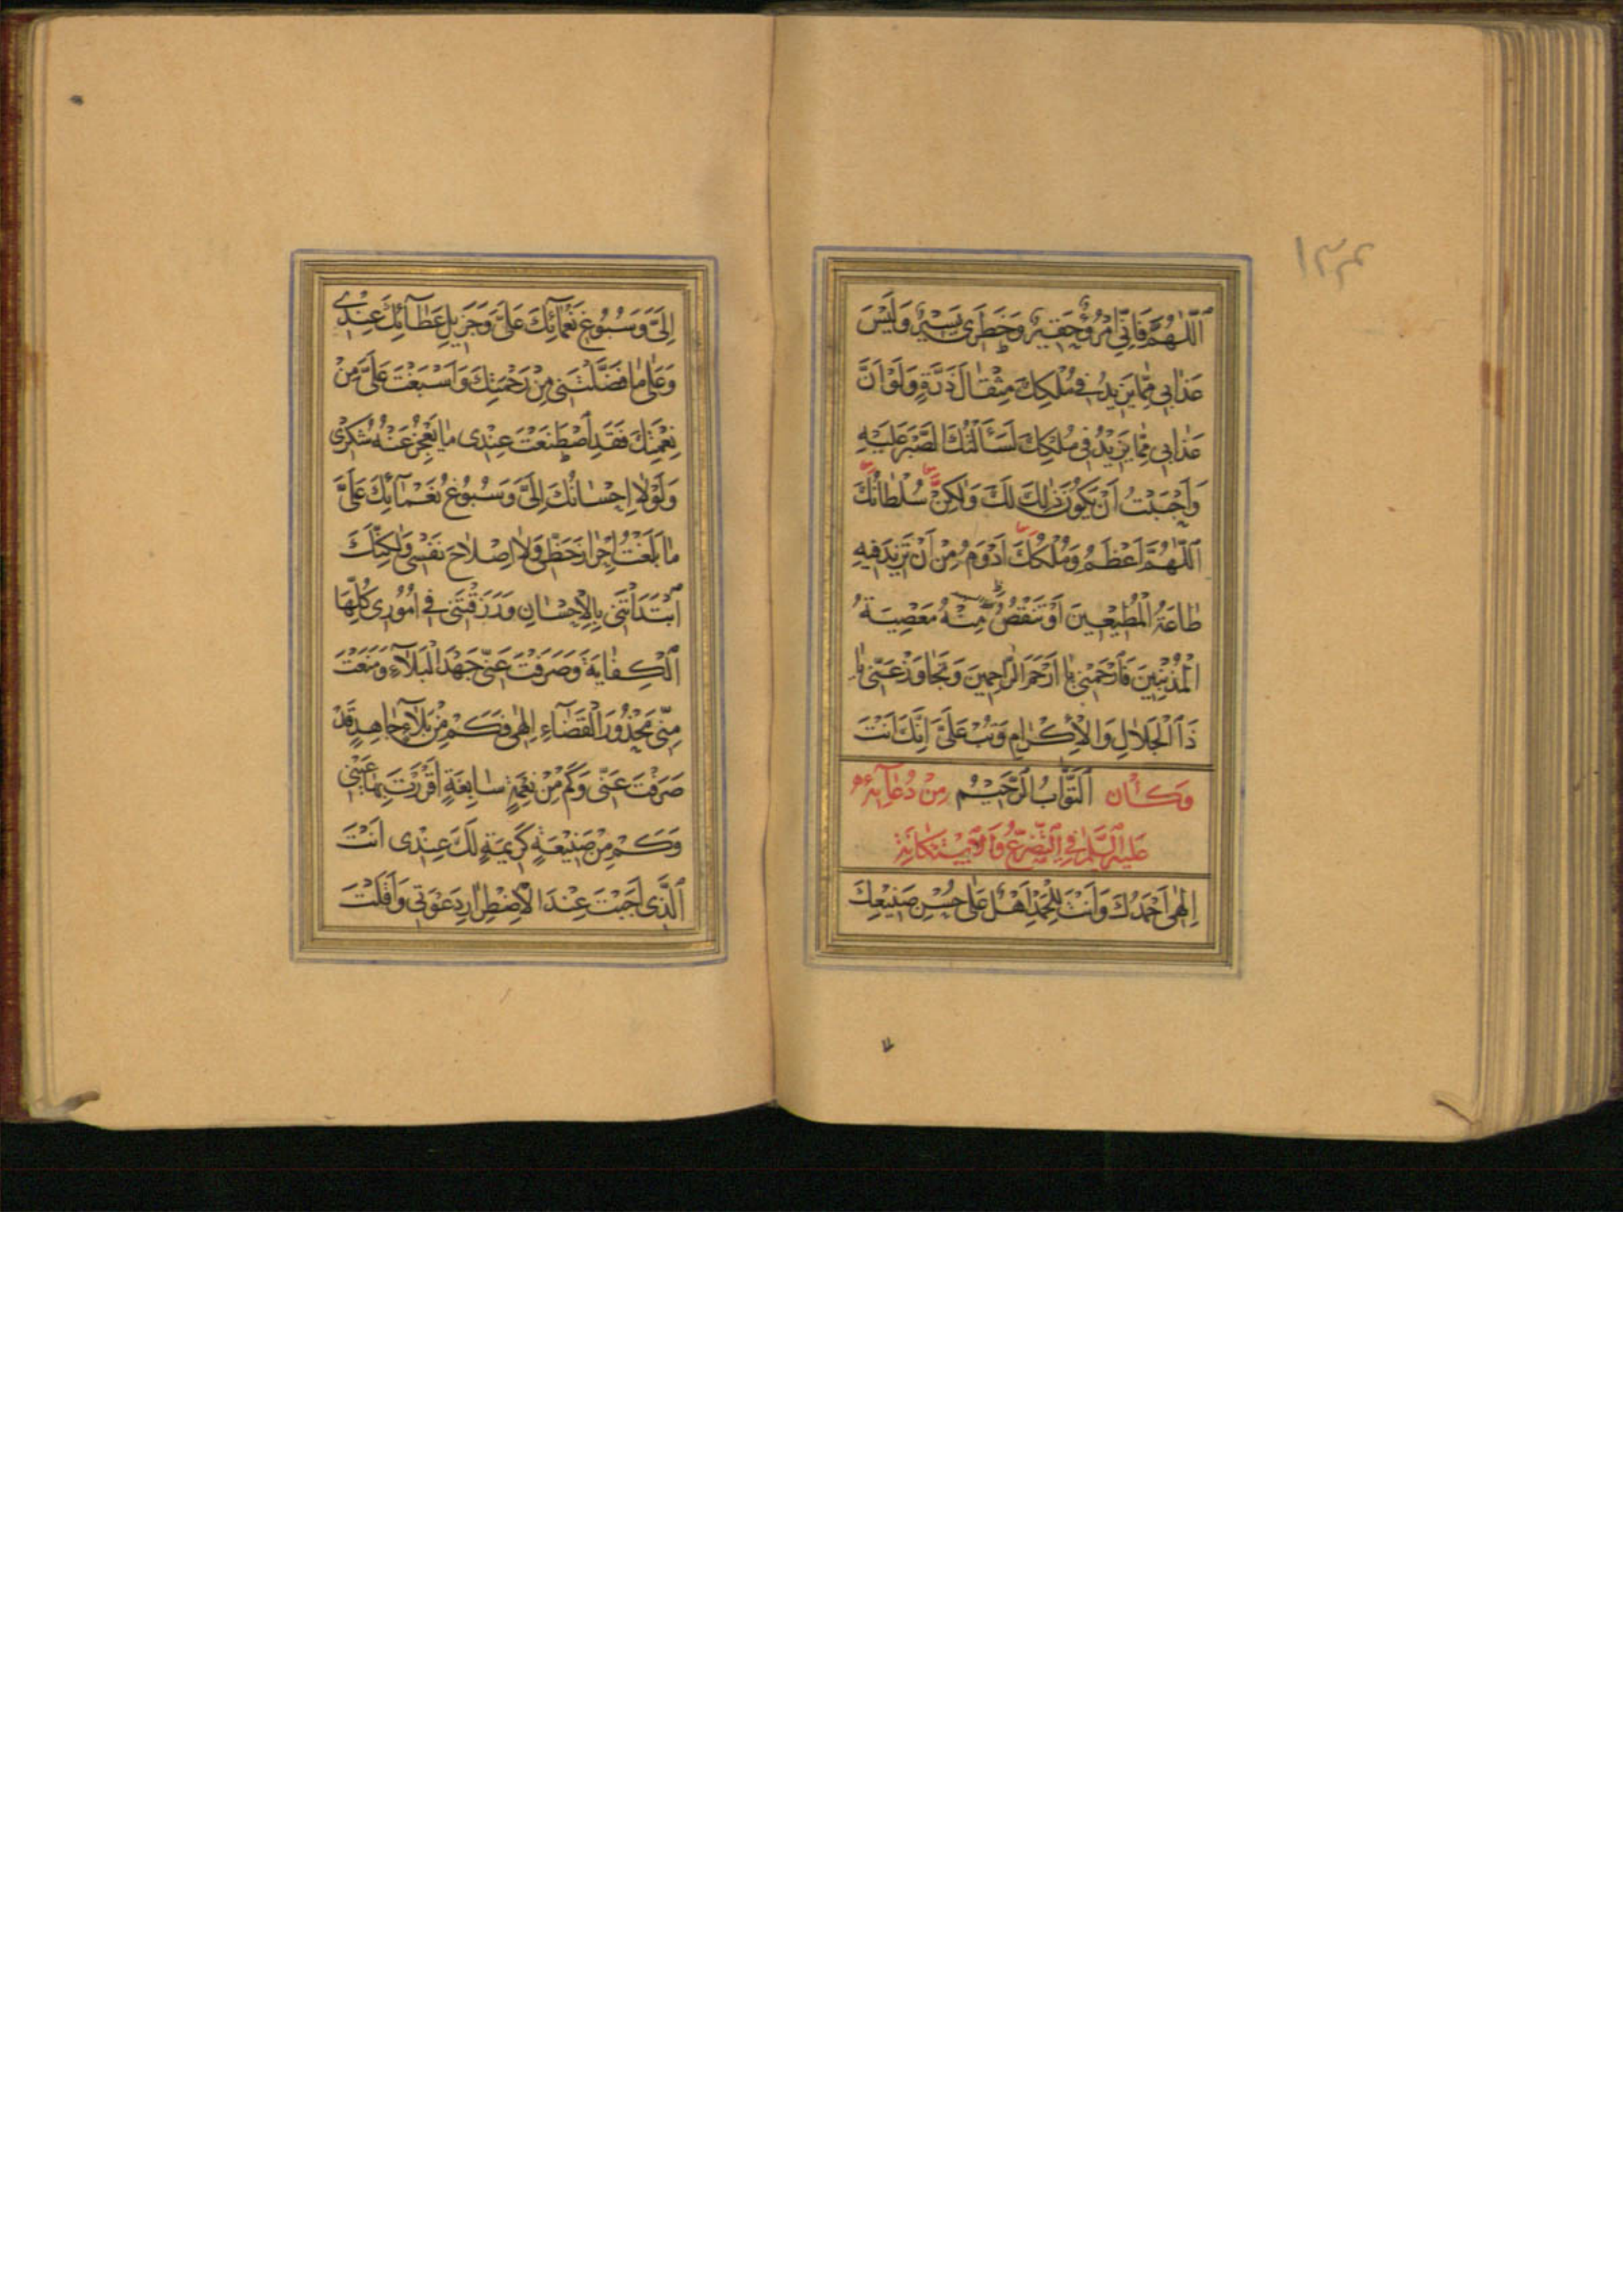 ١٣٤
اَللّٰهُمَّ فَاِنِّى امْرُؤٌ حَقِيرٌ وَخَطَرِى يَسِيرٌ وَلَيْسَ
عَذابِى مِمّا يَزِيدُ فِى مُلْكِكَ مِثْقالَ ذَرَّةٍ وَلَوْ اَنَّ
عَذابِى مِمّا يَزِيدُ فِى مُلْكِكَ لَسَئَلْتُكَ الصَّبْرَ عَلَيْهِ
وَاَحْبَبْتُ اَنْ يَكُونَ ذٰلِكَ لَكَ وَلٰكِنْ سُلْطانُكَ
اَللّٰهُمَّ اَعْظَمُ وَمُلْكُكَ اَدْوَمُ مِنْ اَنْ تَزِيدَ فِيهِ
طاعَةُ الْمُطِيعِينَ اَوْ تَنْقُصَ مِنْهُ مَعْصِيَةُ
الْمُذْنِبِينَ فَارْحَمْنِى يا اَرْحَمَ الرّاحِمِينَ وَتَجاوَزْ عَنِّى يا
ذَا الْجَلالِ وَالْاِكْرامِ وَتُبْ عَلَىَّ اِنَّكَ اَنْتَ
وَكانَ التَّوّابُ الرَّحِيمُ مِنْ دُعائِهِ
عَلَيْهِ السَّلامُ فِى التَّضَرُّعِ وَالْاِسْتِكانَةِ
اِلٰهِى اَحْمَدُكَ وَاَنْتَ لِلْحَمْدِ اَهْلٌ عَلىٰ حُسْنِ صَنِيعِكَ
اِلَىَّ وَسُبُوغِ نَعْمائِكَ عَلَىَّ وَجَزِيلِ عَطائِكَ عِنْدِى
وَعَلىٰ ما فَضَّلْتَنِى مِنْ رَحْمَتِكَ وَاَسْبَغْتَ عَلَىَّ مِنْ
نِعْمَتِكَ فَقَدِ اصْطَنَعْتَ عِنْدِى ما يَعْجِزُ عَنْهُ شُكْرِى
وَلَوْلا اِحْسانُكَ اِلَىَّ وَسُبُوغُ نَعْمائِكَ عَلَىَّ
ما بَلَغْتُ اِحْرازَ حَظِّى وَلا اِصْلاحَ نَفْسِى وَلٰكِنَّكَ
ابْتَدَاْتَنِى بِالْاِحْسانِ وَرَزَقْتَنِى فِى اُمُورِى كُلِّهَا
الْكِفايَةَ وَصَرَفْتَ عَنِّى جَهْدَ الْبَلاءِ وَمَنَعْتَ
مِنِّى مَحْذُورَ الْقَضاءِ اِلٰهِى فَكَمْ مِنْ بَلاءٍ جاهِدٍ قَدْ
صَرَفْتَ عَنِّى وَكَمْ مِنْ نِعْمَةٍ سابِغَةٍ اَقْرَرْتَ بِها عَيْنِى
وَكَمْ مِنْ صَنِيعَةٍ كَرِيمَةٍ لَكَ عِنْدِى اَنْتَ
الَّذِى اَجَبْتَ عِنْدَ الْاِضْطِرارِ دَعْوَتِى وَاَقَلْتَ